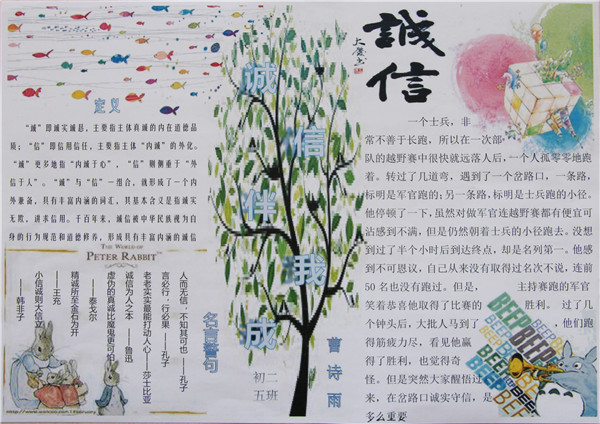 誠
信
定义
“诚”即诚实诚恳，主要指主体真诚的内在道德品
质；“信”即信用信任，主要指主体“内诚”的外化。
“诚”更多地指“内诚于心”，“信”则侧重于“外
信于人”。“诚”与“信”一组合，就形成了一个内
外兼备，具有丰富内涵的词汇，其基本含义是指诚实
无欺，讲求信用。千百年来，诚信被中华民族视为自
身的行为规范和道德修养，形成具有丰富内涵的诚信
THE WORLD OF
PETER RABBIT
人而无信，不知其可也——孔子
言必行；行必果——孔子
老老实实最能打动人心——莎士比亚
诚信为人之本——鲁迅
虚伪的真诚比魔鬼更可怕
——泰戈尔
精诚所至金石为开
——王充
小信诚则大信立
——韩非子
名言警句
诚信伴我成
初二
五班
曹诗雨
一个士兵，非
常不善于长跑，所以在一次部
队的越野赛中很快就远落人后，一个人孤零零地跑
着。转过了几道弯，遇到了一个岔路口，一条路，
标明是军官跑的；另一条路，标明是士兵跑的小径。
他停顿了一下，虽然对做军官连越野赛都有便宜可
沾感到不满，但是仍然朝着士兵的小径跑去。没想
到过了半个小时后到达终点，却是名列第一。他感
到不可思议，自己从来没有取得过名次不说，连前
50名也没有跑过。但是，主持赛跑的军官
笑着恭喜他取得了比赛的胜利。过了几
个钟头后，大批人马到了，他们跑
得筋疲力尽，看见他赢
得了胜利，也觉得奇
怪。但是突然大家醒悟过
来，在岔路口诚实守信，是
多么重要
BEEP
BEEP
BEEP
BEEP
BEEP